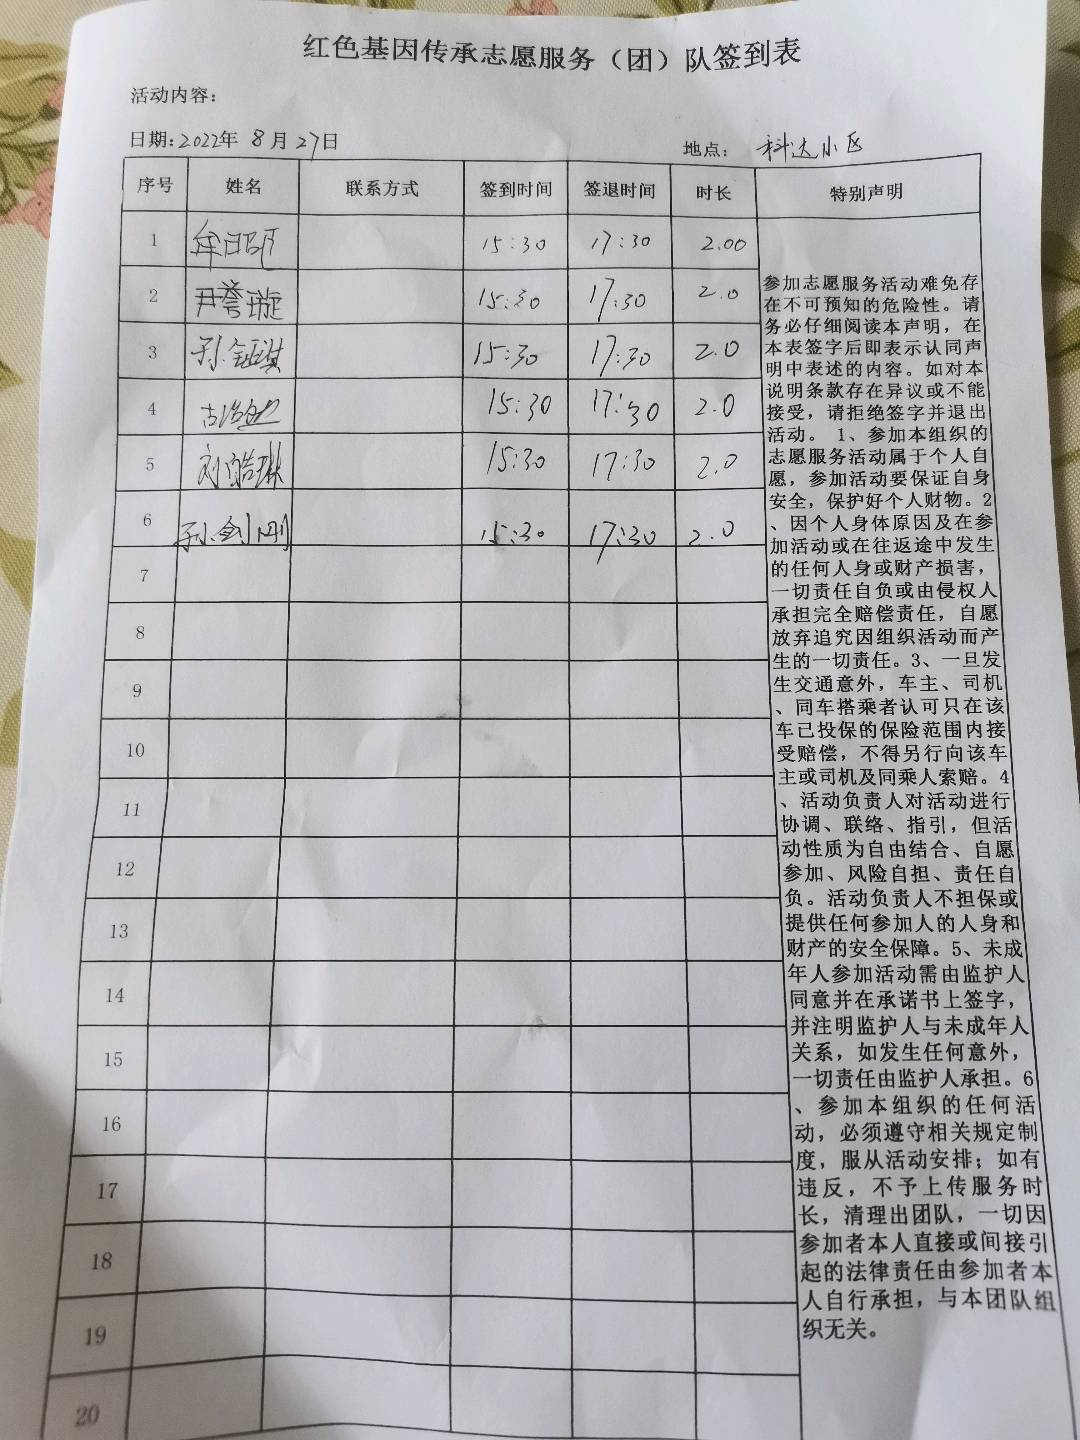 红色基因传承志愿服务（团）队签到表
活动内容：
日期：2022年 8月27日
地点： 科达小区
序号 姓名 联系方式 签到时间 签退时间 时长 特别声明
1 15:30 17:30 2.00
2 尹誉璇 15:30 17:30 2.0
3 孙钰淇 15:30 17:30 2.0
4 15:30 17:30 2.0
5 刘皓琳 15:30 17:30 2.0
6 孙剑刚 15:30 17:30 2.0
7
8
9
10
11
12
13
14
15
16
17
18
19
20
参加志愿服务活动难免存
在不可预知的危险性。请
务必仔细阅读本声明，在
本表签字后即表示认同声
明中表述的内容。如对本
说明条款存在异议或不能
接受，请拒绝签字并退出
活动。 1、参加本组织的
志愿服务活动属于个人自
愿，参加活动要保证自身
安全，保护好个人财物。2
、因个人身体原因及在参
加活动或在往返途中发生
的任何人身或财产损害，
一切责任自负或由侵权人
承担完全赔偿责任，自愿
放弃追究因组织活动而产
生的一切责任。3、一旦发
生交通意外，车主、司机
、同车搭乘者认可只在该
车已投保的保险范围内接
受赔偿，不得另行向该车
主或司机及同乘人索赔。4
、活动负责人对活动进行
协调、联络、指引，但活
动性质为自由结合、自愿
参加、风险自担、责任自
负。活动负责人不担保或
提供任何参加人的人身和
财产的安全保障。5、未成
年人参加活动需由监护人
同意并在承诺书上签字，
并注明监护人与未成年人
关系，如发生任何意外，
一切责任由监护人承担。6
、参加本组织的任何活
动，必须遵守相关规定制
度，服从活动安排；如有
违反，不予上传服务时
长，清理出团队，一切因
参加者本人直接或间接引
起的法律责任由参加者本
人自行承担，与本团队组
织无关。